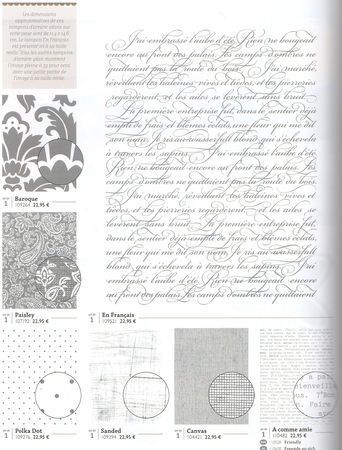 Les dimensions
approximatives de ces
tampons d'arrière-plans sur
cette page sont de 11,4 x 14,6
cm. Le tampon En Français
est présenté ici à sa taille
réelle. Tous les autres tampons
d'arrière-plan montrent
l'image pleine
avec une petite partie de
l'image à sa taille réelle.
J'ai embrassé l'aube d'été. Rien ne bougeait
encore au front des palais. les camps d'ombres ne
quittaient pas la route du bois. J'ai marché,
réveillant les haleines vives et tièdes, et les pierreries
regardèrent, et les ailes se levèrent sans bruit.
La première entreprise fut, dans le sentier déjà
empli de frais et blêmes éclats, une fleur qui me dit
son nom. Je ris au wasserfall blond qui s'échevela
à travers les sapins. J'ai embrassé l'aube d'été.
Rien ne bougeait encore au front des palais. les
camps d'ombres ne quittaient pas la route du bois.
J'ai marché, réveillant les haleines vives et
tièdes, et les pierreries regardèrent, et les ailes se
levèrent sans bruit. La première entreprise fut,
dans le sentier déjà empli de frais et blêmes éclats,
une fleur qui me dit son nom. Je ris au wasserfall
blond, qui s'échevela à travers les sapins. J'ai
embrassé l'aube d'été. Rien ne bougeait encore
au front des palais. les camps d'ombres ne quittaient
1 Baroque
109264 22,95 €
1 Paisley
22,95 €
1 En Français
109521 22,95 €
a pa
bienveilla
us. 7"Bon
Faire
avec
1 Polka Dot
109276 22,95 €
1 Sanded
109294 22,95 €
1 Canvas
104421 22,95 €
1 A comme amie
110482 22,95 €
Friendly